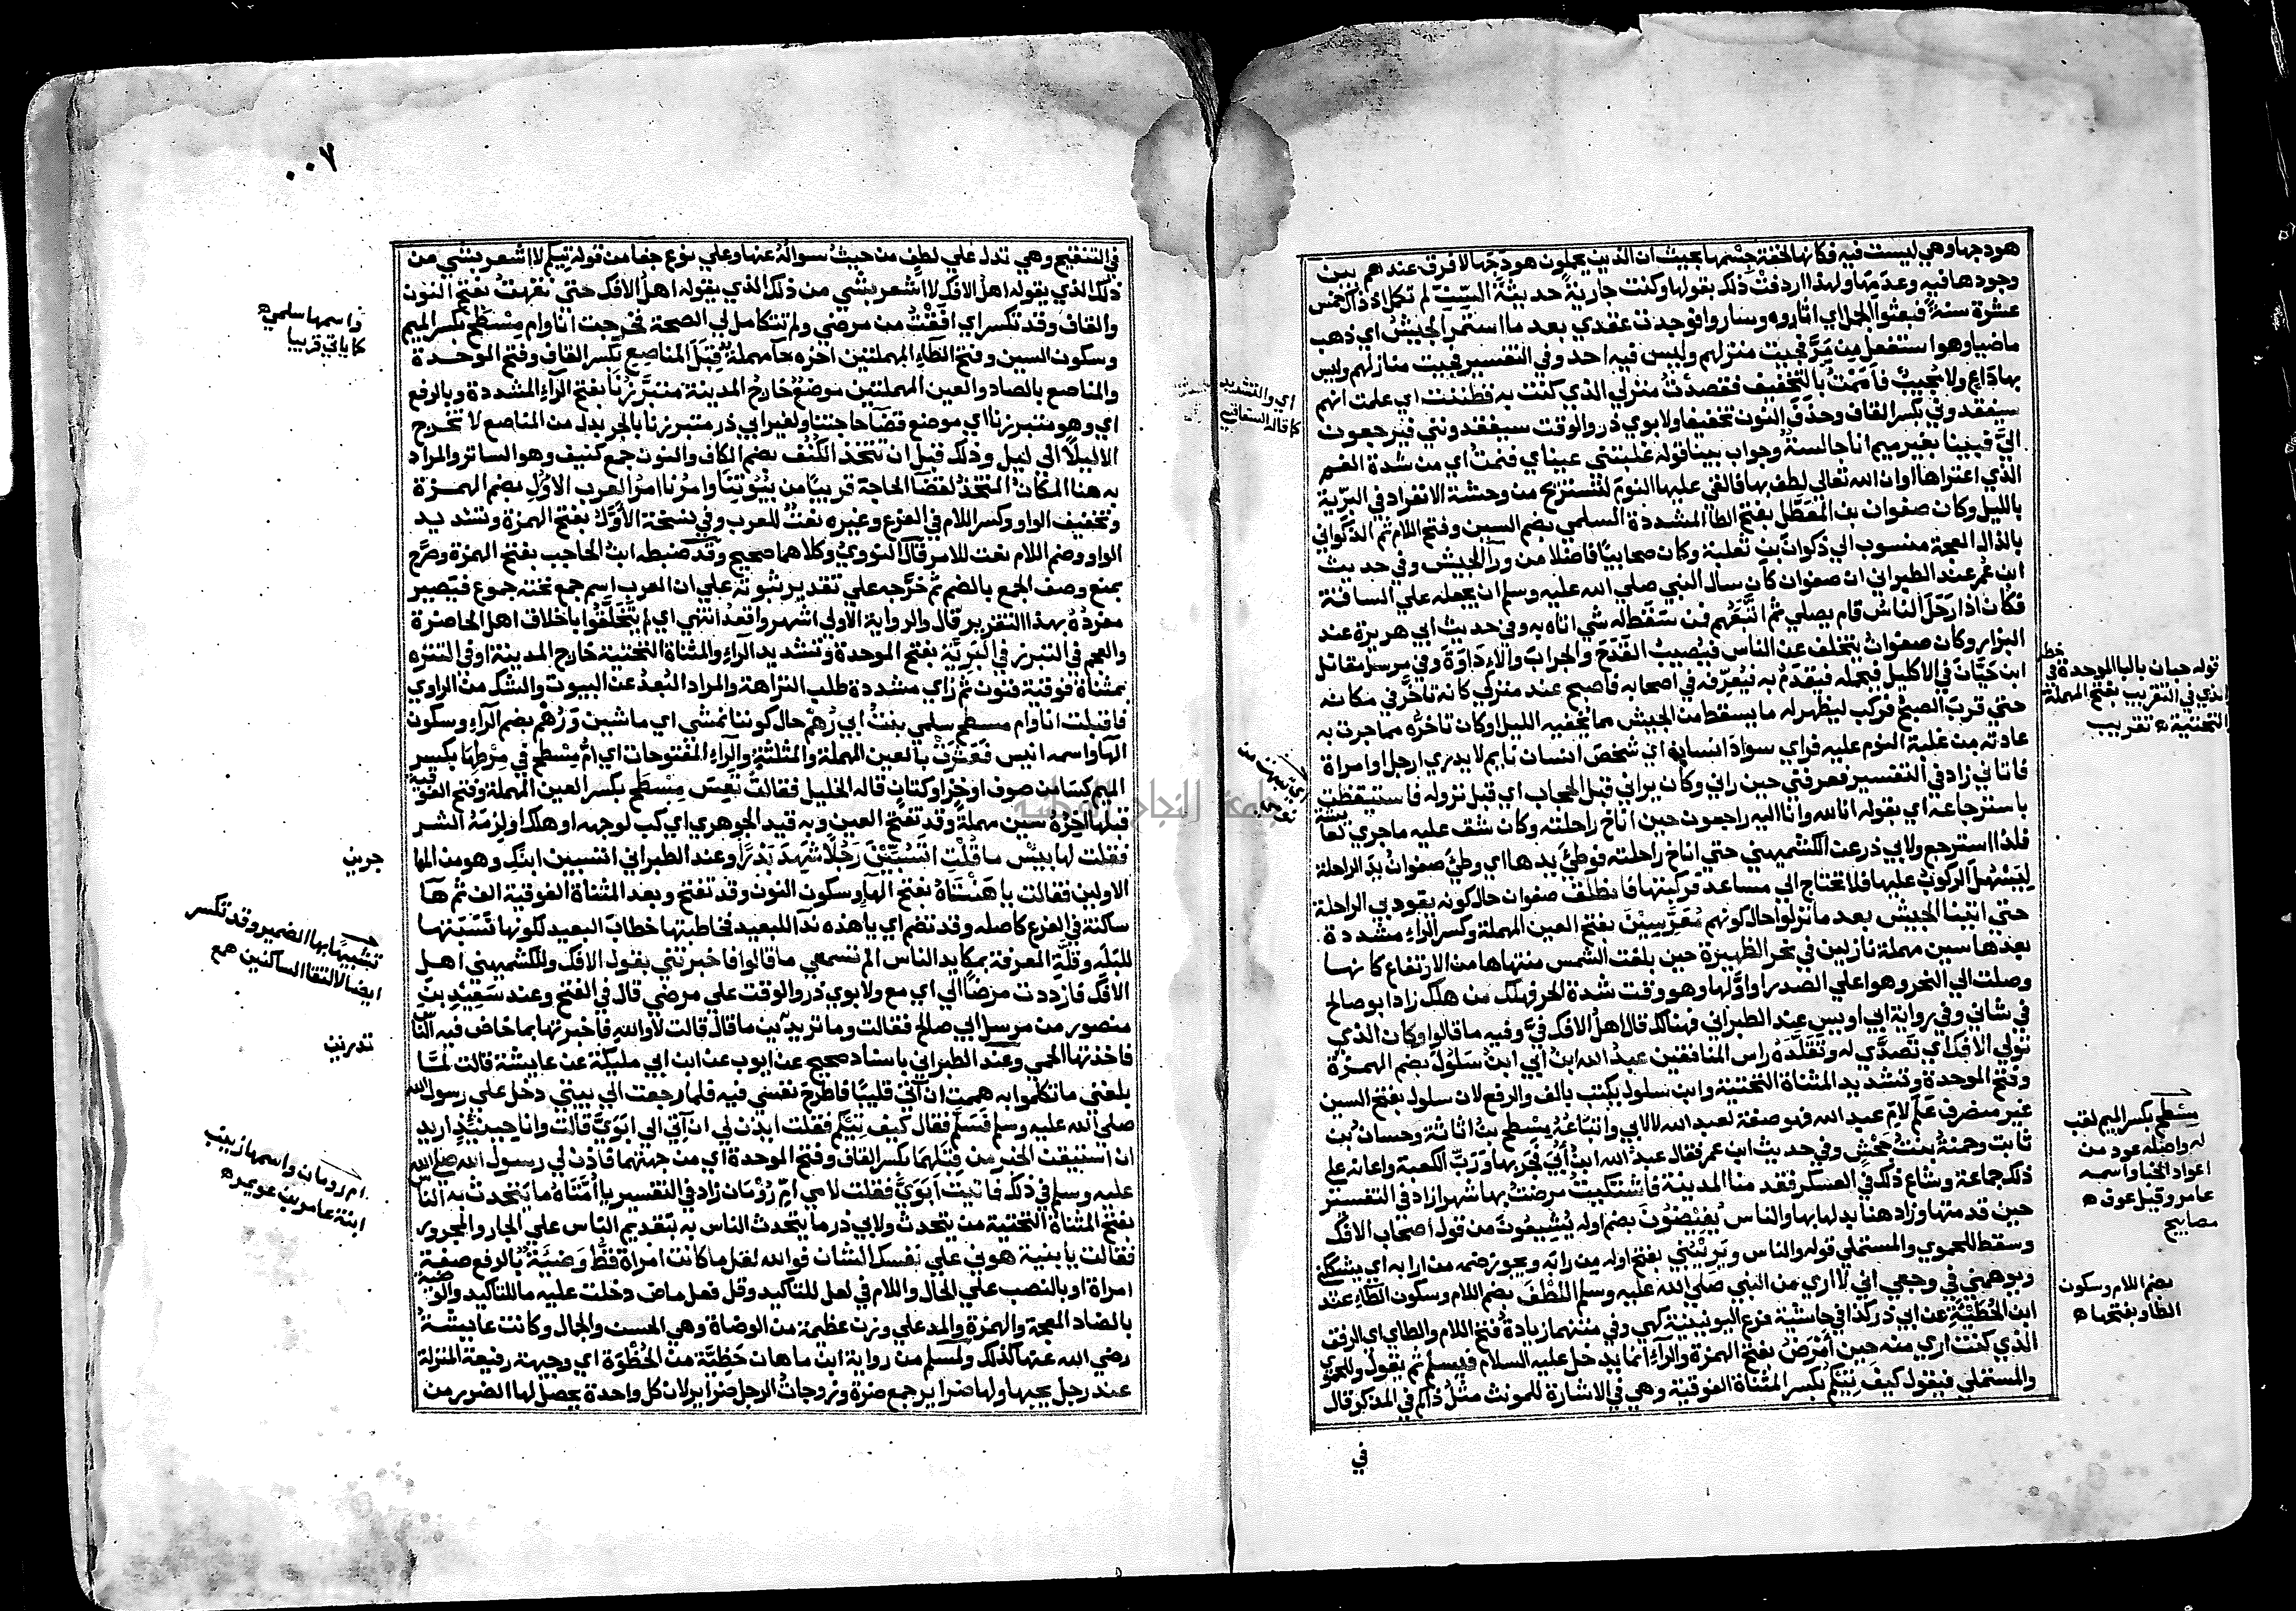 هودجها وهي ليست فيه فكانها لخفة جسمها بحيث ان الذين يحملون هودجها لا فرق عندهم بين
وجودها فيه وعدمها ولهذا اردفت ذلك بقولها وكنت جارية حديثة السن لم تكمل اذ ذاك خمس
عشرة سنة فبعثوا الجمل اي اثاروه وساروا فوجدت عقدي بعد ما استمر الجيش اي ذهب
ماضيا وهو استفعل من مر فجيت منزلهم وليس فيه احد وفي التفسير فجيت منازلهم وليس
بها داع ولا مجيب فاممت بالتخفيف فقصدت منزلي الذي كنت به فظننت اي علمت انهم
سيفقدوني بكسر القاف وحذف النون تخفيفا ولابوي ذر والوقت سيفقدونني فيرجعون
الي فبينا بغير ميم انا جالسة وجواب بينا قوله غلبتني عيناي فنمت اي من شدة الغم
الذي اعتراها او ان الله تعالي لطف بها فالقي عليها النوم لتستريح من وحشة الانفراد في البرية
بالليل وكان صفوان بن المعطل بفتح الطا المشددة السلمي بضم السين وفتح اللام ثم الذكواني
بالذال المعجمة منسوب الي ذكوان بن ثعلبة وكان صحابيا فاضلا من ورآ الجيش وفي حديث
ابن عمر عند الطبراني ان صفوان كان سال النبي صلي الله عليه وسلم ان يجعله علي الساقة
فكان اذا رحل الناس قام يصلي ثم اتبعهم فمن سقط له شي اتاه به وفي حديث ابي هريرة عند
البزار وكان صفوان يتخلف عن الناس فيصيب القدح والجراب والاداوة وفي مرسل مقاتل
ابن حيان في الاكليل فيحمله فيقدم به فيعرفه في اصحابه فاصبح عند منزلي كانه تاخر في مكانه
حتي قرب الصبح فركب ليظهر له ما يسقط من الجيش مما يخفيه الليل او كان تاخره مما جرت به
عادته من غلبة النوم عليه فراي سواد انسان اي شخص انسان نايم لا يدري ارجل او امراة
فاتاني زاد في التفسير فعرفني حين راني وكان يراني قبل الحجاب اي قبل نزوله فاستيقظت
باسترجاعه اي بقوله انا لله وانا اليه راجعون حين اناخ راحلته وكان شق عليه ما جري لعايشة
فلذا استرجع ولابي ذر عن الكشميهني حتي اناخ راحلته فوطئ يدها اي وطئ صفوان يد الراحلة
ليسهل الركوب عليها فلا تحتاج الي مساعد فركبتها فانطلق صفوان حال كونه يقود بي الراحلة
حتي اتينا الجيش بعد ما نزلوا حال كونهم معرسين بفتح العين المهملة وكسر الراء مشددة
بعدها سين مهملة نازلين في نحر الظهيرة حين بلغت الشمس منتهاها من الارتفاع كانها
وصلت الي النحر وهو اعلي الصدر او اولها وهو وقت شدة الحر فهلك من هلك زاد ابو صالح
في شاني وفي رواية ابي اويس عند الطبراني فهنالك قال اهل الافك في وفيه ما قالوا وكان الذي
تولي الافك اي تصدي له وتقلده راس المنافقين عبد الله ابن ابي ابن سلول بضم الهمزة
وفتح الموحدة وتشديد المثناة التحتية وابن سلول يكتب بالف والرفع لان سلول بفتح السين
غير منصرف علم لام عبد الله فهو صفة لعبد الله لا لابي واتباعه مسطح بن اثاثة وحسان بن
ثابت وحمنة بنت جحش وفي حديث ابن عمر فقال عبد الله ابن ابي فجر بها ورب الكعبة واعانه علي
ذلك جماعة وشاع ذلك في العسكر فقدمنا المدينة فاشتكيت مرضت بها شهرا زاد في التفسير
حين قدمتها وزاد هنا بدلها بها والناس يفيضون بضم اوله يشيعون من قول اصحاب الافك
وسقط للحموي والمستملي قوله والناس ويريبني بفتح اوله من رابه ويجوز ضمه من ارابه اي يشككني
ويوهمني في وجعي اني لا اري من النبي صلي الله عليه وسلم اللطف بضم اللام وسكون الطاء عند
ابن الحطيئة عن ابي ذر كذا في حاشية فرع اليونينية كهي وفي متنهما زيادة فتح اللام والطا اي الرفق
الذي كنت اري منه حين امرض بفتح الهمزة والراء انما يدخل عليه السلام فيسلم ثم يقول وللحموي
والمستملي فيقول كيف تيكم بكسر المثناة الفوقية وهي في الاشارة للمونث مثل ذاكم في المذكر قال
في
اي والتشديد
كما قاله السفاقسي
خط
قوله حبان بالبا الموحدة في
الذي في التقريب بفتح المهملة
التحتية ه تقريب
مسطح بكسر الميم لقب
له واصله عود من
اعواد الخبا واسمه
عامر وقيل عوف ه
مصابيح
بضم اللام وسكون
الطا وبفتحها ه
٠٠٧
في التنقيح وهي تدل علي لطف من حيث سواله عنها وعلي نوع جفا من قوله تيكم لا اشعر بشي من
ذلك الذي يقوله اهل الافك لا اشعر بشي من ذلك الذي يقوله اهل الافك حتي نقهت بفتح النون
والقاف وقد تكسر اي افقت من مرضي ولم تتكامل لي الصحة فخرجت انا وام مسطح بكسر الميم
وسكون السين وفتح الطاء المهملتين اخره حآ مهملة قبل المناصع بكسر القاف وفتح الموحدة
والمناصع بالصاد والعين المهملتين موضع خارج المدينة متبرزنا بفتح الراء المشددة وبالرفع
اي وهو متبرزنا اي موضع قضآ حاجتنا ولغير ابي ذر متبرزنا بالجر بدل من المناصع لا نخرج
الا ليلا الي ليل وذلك قبل ان نتخذ الكنف بضم الكاف والنون جمع كنيف وهو الساتر والمراد
به هنا المكان المتخذ لقضا الحاجة قريبا من بيوتنا وامرنا امر العرب الاول بضم الهمزة
وتخفيف الواو وكسر اللام في الفرع وغيره نعت للعرب وفي نسخة الاول بفتح الهمزة وتشديد
الواو وضم اللام نعت للامر قال النووي وكلاهما صحيح وقد ضبطه ابن الحاجب بفتح الهمزة وصرح
بمنع وصف الجمع بالضم ثم خرجه علي تقدير ثبوته علي ان العرب اسم جمع تحته جموع فيصير
مفرده بهذا التقرير قال والرواية الاولي اشهر واقعد انتهي اي لم يتخلقوا باخلاق اهل الحاضرة
والعجم في التبرز في البرية بفتح الموحدة وتشديد الراء والمثناة التحتية خارج المدينة او في التنزه
بمثناة فوقية فنون ثم زاي مشددة طلب النزاهة والمراد البعد عن البيوت والشك من الراوي
فاقبلت انا وام مسطح سلمي بنت ابي رهم حال كوننا نمشي اي ماشين ورهم بضم الراء وسكون
الهآ واسمه انيس فعثرت بالعين المهملة والمثلثة والراء المفتوحات اي ام مسطح في مرطها بكسر
الميم كسا من صوف او خز او كتان قاله الخليل فقالت تعس مسطح بكسر العين المهملة وفتح الفوقية
قبلها اخره سين مهملة وقد تفتح العين وبه قيد الجوهري اي كب لوجهه او هلك او لزمه الشر
فقلت لها بئس ما قلت اتسبين رجلا شهد بدرا وعند الطبراني اتسبين ابنك وهو من المها
الاولين فقالت يا هنتاه بفتح الهآ وسكون النون وقد تفتح وبعد المثناة الفوقية الف ثم ها
ساكنة في الفرع كاصله وقد تضم اي يا هذه ندآ للبعيد فخاطبتها خطاب البعيد لكونها نسبتها
للبله وقلة المعرفة بمكايد الناس الم تسمعي ما قالوا فاخبرتني بقول الافك وللكشميهني اهل
الافك فازددت مرضا الي اي مع ولابوي ذر والوقت علي مرضي قال في الفتح وعند سعيد بن
منصور من مرسل ابي صالح فقالت وما تدرين ما قال قالت لا والله فاخبرتها بما خاض فيه الناس
فاخذتها الحمي وعند الطبراني باسناد صحيح عن ايوب عن ابن ابي مليكة عن عايشة قالت لما
بلغني ما تكلموا به هممت ان آتي قليبا فاطرح نفسي فيه فلما رجعت الي بيتي دخل علي رسول الله
صلي الله عليه وسلم فسلم فقال كيف تيكم فقلت ايذن لي ان آتي الي ابوي قالت وانا حينئذ اريد
ان استيقن الخبر من قبلهما بكسر القاف وفتح الموحدة اي من جهتهما فاذن لي رسول الله صلي الله
عليه وسلم في ذلك فاتيت ابوي فقلت لامي ام رومان زاد في التفسير يا امتاه ما يتحدث به الناس
بفتح المثناة التحتية من يتحدث ولابي ذر ما يتحدث الناس به بتقديم الناس علي الجار والمجرور
فقالت يا بنية هوني علي نفسك الشان فوالله لقل ما كانت امراة قط وضيئة بالرفع صفة
امراة او بالنصب علي الحال واللام في لقل للتاكيد وقل فعل ماض دخلت عليه ما للتاكيد والوضيئة
بالضاد المعجمة والهمزة والمد علي وزن عظيمة من الوضاة وهي الحسن والجمال وكانت عايشة
رضي الله عنها كذلك ولمسلم من رواية ابن ماهان حظية من الحظوة اي وجيهة رفيعة المنزلة
عند رجل يحبها ولها ضراير جمع ضرة وزوجات الرجل ضراير لان كل واحدة يحصل لها الضرر من
واسمها سلمي ه
كما ياتي قريبا
جرين
نسبتها الضمير وقد تكسر
ايضا لالتقا الساكنين هع
تدرين
ام رومان واسمها زينب
ابنة عامر بن عويمر ه